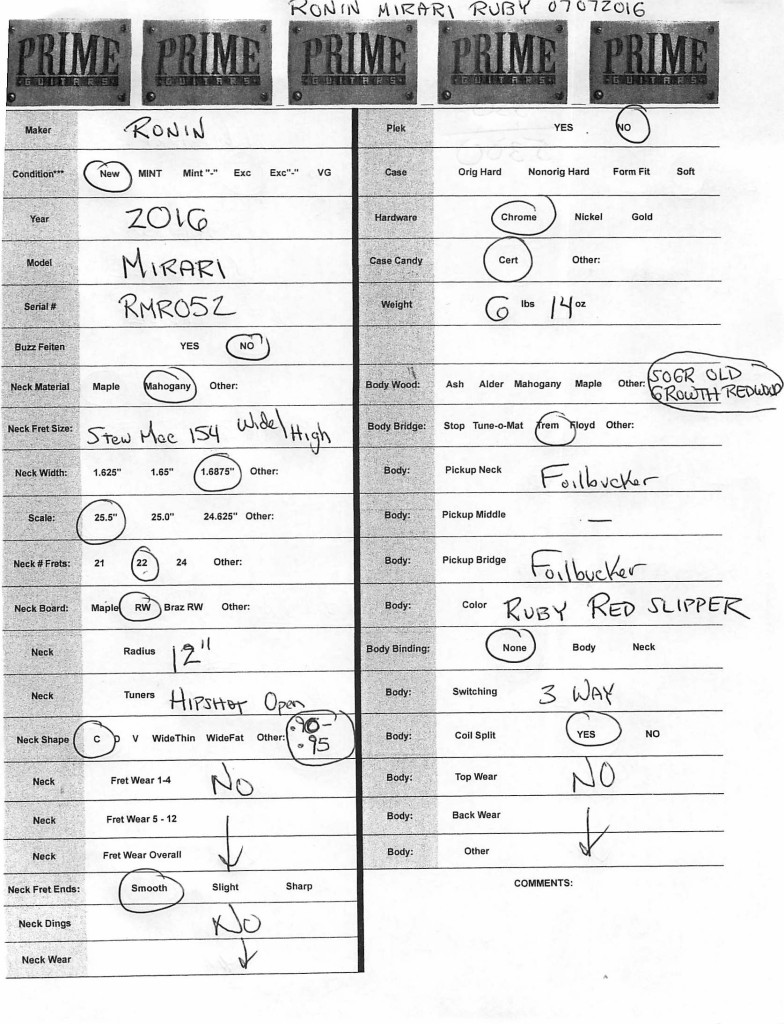 RONIN MIRARI RUBY 07072016
PRIME GUITARS PRIME GUITARS PRIME GUITARS PRIME GUITARS PRIME GUITARS
Maker RONIN
Condition*** New MINT Mint "-" Exc Exc"-" VG
Year 2016
Model MIRARI
Serial # RMR052
Buzz Feiten YES NO
Neck Material Maple Mahogany Other:
Neck Fret Size: Stew Mac 154 Wide/High
Neck Width: 1.625" 1.65" 1.6875" Other:
Scale: 25.5" 25.0" 24.625" Other:
Neck # Frets: 21 22 24 Other:
Neck Board: Maple RW Braz RW Other:
Neck Radius 12"
Neck Tuners HIPSHOT Open
Neck Shape C D V WideThin WideFat Other: .90-
.95
Neck Fret Wear 1-4 NO
Neck Fret Wear 5 - 12
Neck Fret Wear Overall
Neck Fret Ends: Smooth Slight Sharp
Neck Dings NO
Neck Wear
Plek YES NO
Case Orig Hard Nonorig Hard Form Fit Soft
Hardware Chrome Nickel Gold
Case Candy Cert Other:
Weight 6 lbs 14 oz
Body Wood: Ash Alder Mahogany Maple Other: 50GR OLD
GROWTH REDWOOD
Body Bridge: Stop Tune-o-Mat Trem Floyd Other:
Body: Pickup Neck Foilbucker
Body: Pickup Middle —
Body: Pickup Bridge Foilbucker
Body: Color RUBY RED SLIPPER
Body Binding: None Body Neck
Body: Switching 3 WAY
Body: Coil Split YES NO
Body: Top Wear NO
Body: Back Wear
Body: Other
COMMENTS: